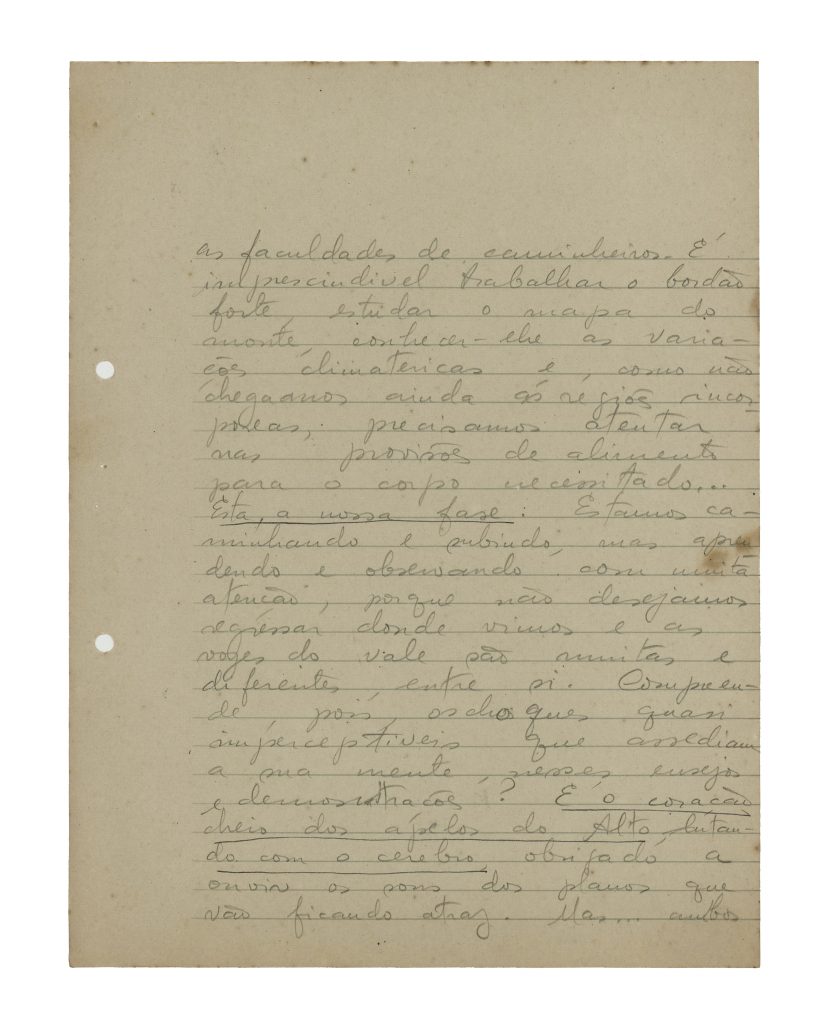 as faculdades de caminheiros. É
imprescindivel trabalhar o bordão
forte, estudar o mapa do
monte, conhecer-lhe as varia-
ções climatericas e, como não
chegamos ainda ás regiões incor-
poreas, precisamos atentar
nas provisões de alimento
para o corpo necessitado...
Esta, a nossa fase: Estamos ca-
minhando e subindo, mas apren
dendo e observando com muita
atenção, porque não desejamos
regressar donde vimos e as
vozes do vale são muitas e
diferentes, entre si. Compreen-
de, pois, os choques quasi
imperceptiveis que assediam
a sua mente, nesses ensejos
e demonstrações? É o coração
cheio dos apelos do Alto, lutan-
do com o cerebro, obrigado a
ouvir os sons dos planos que
vão ficando atraz. Mas... ambos